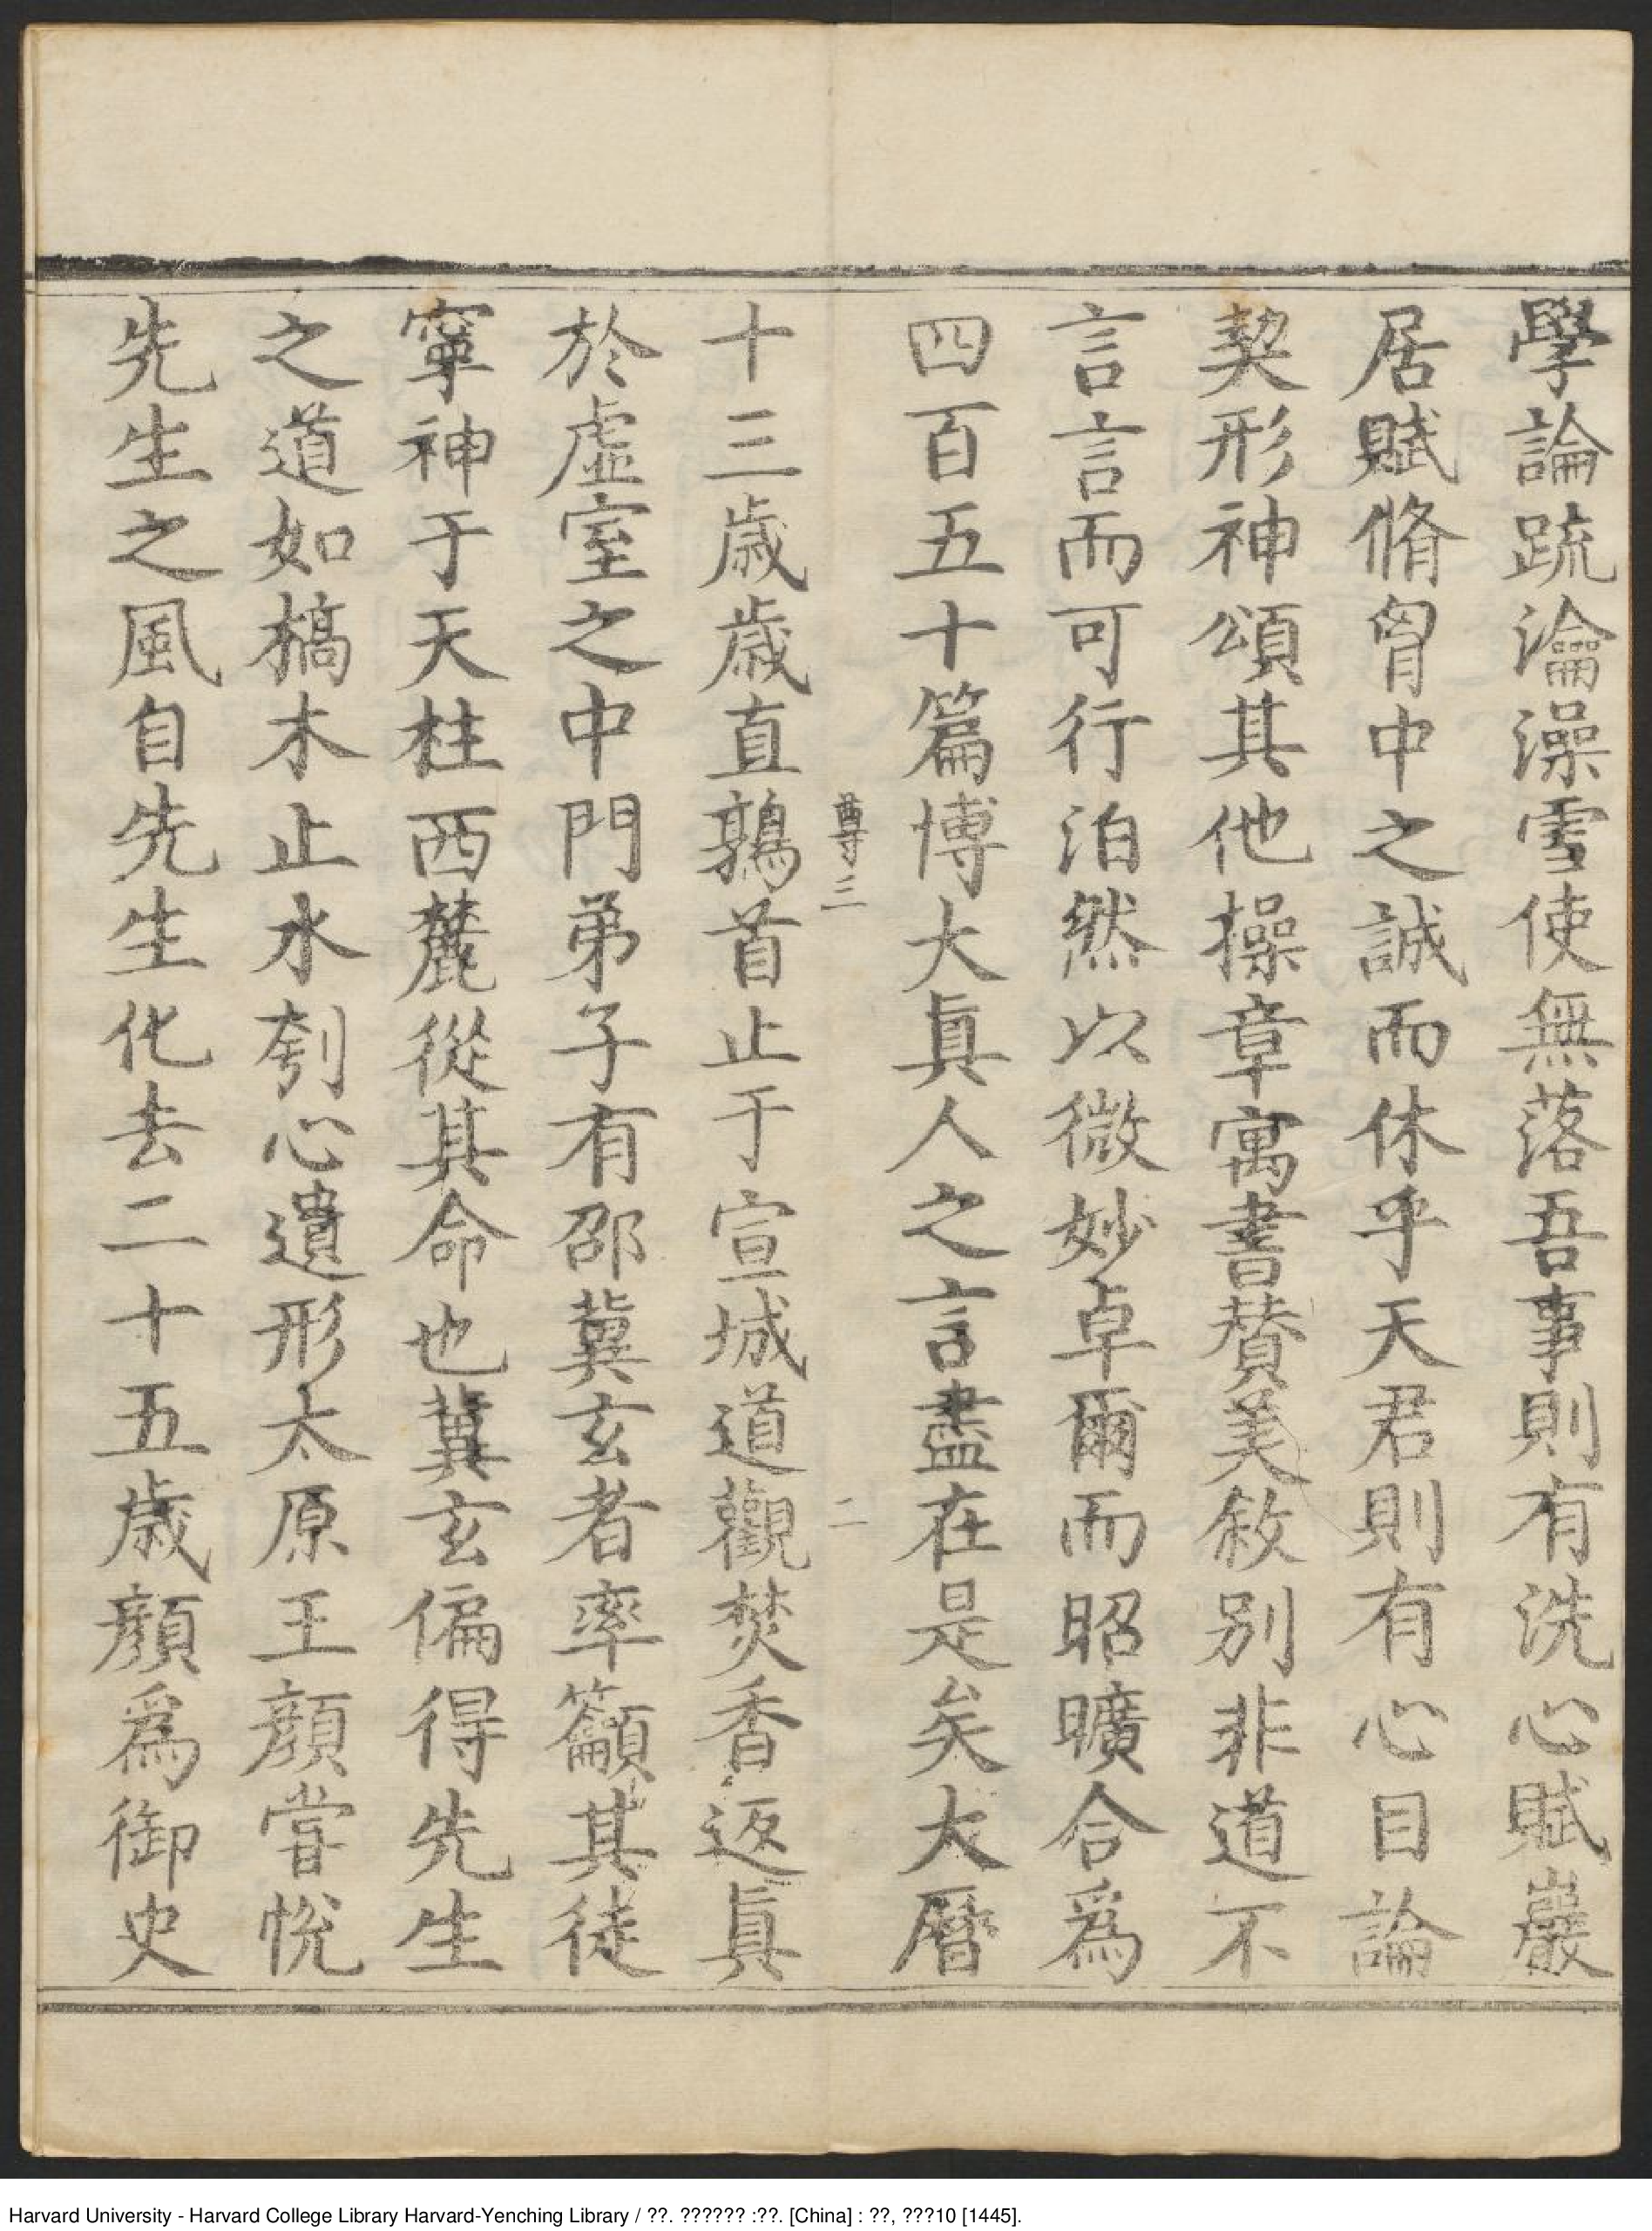 學論䟽瀹澡雪使無落吾事則有洗心賦巖
居賦脩胷中之誠而休乎天君則有心目論
契形神頌其他操章寓書贊美敘別非道不
言言而可行泊然以微妙卓爾而昭曠合爲
四百五十篇博大眞人之言盡在是矣大曆
尊三
二
十三歲歲直鶉首止于宣城道觀焚香返眞
於虛室之中門弟子有邵冀玄者率籲其徒
寧神于天柱西麓從其命也冀玄偏得先生
之道如槁木止水刳心遺形太原王顔嘗悅
先生之風自先生化去二十五歲顔爲御史
Harvard University - Harvard College Library Harvard-Yenching Library / ??. ?????? :??. [China] : ??, ???10 [1445].